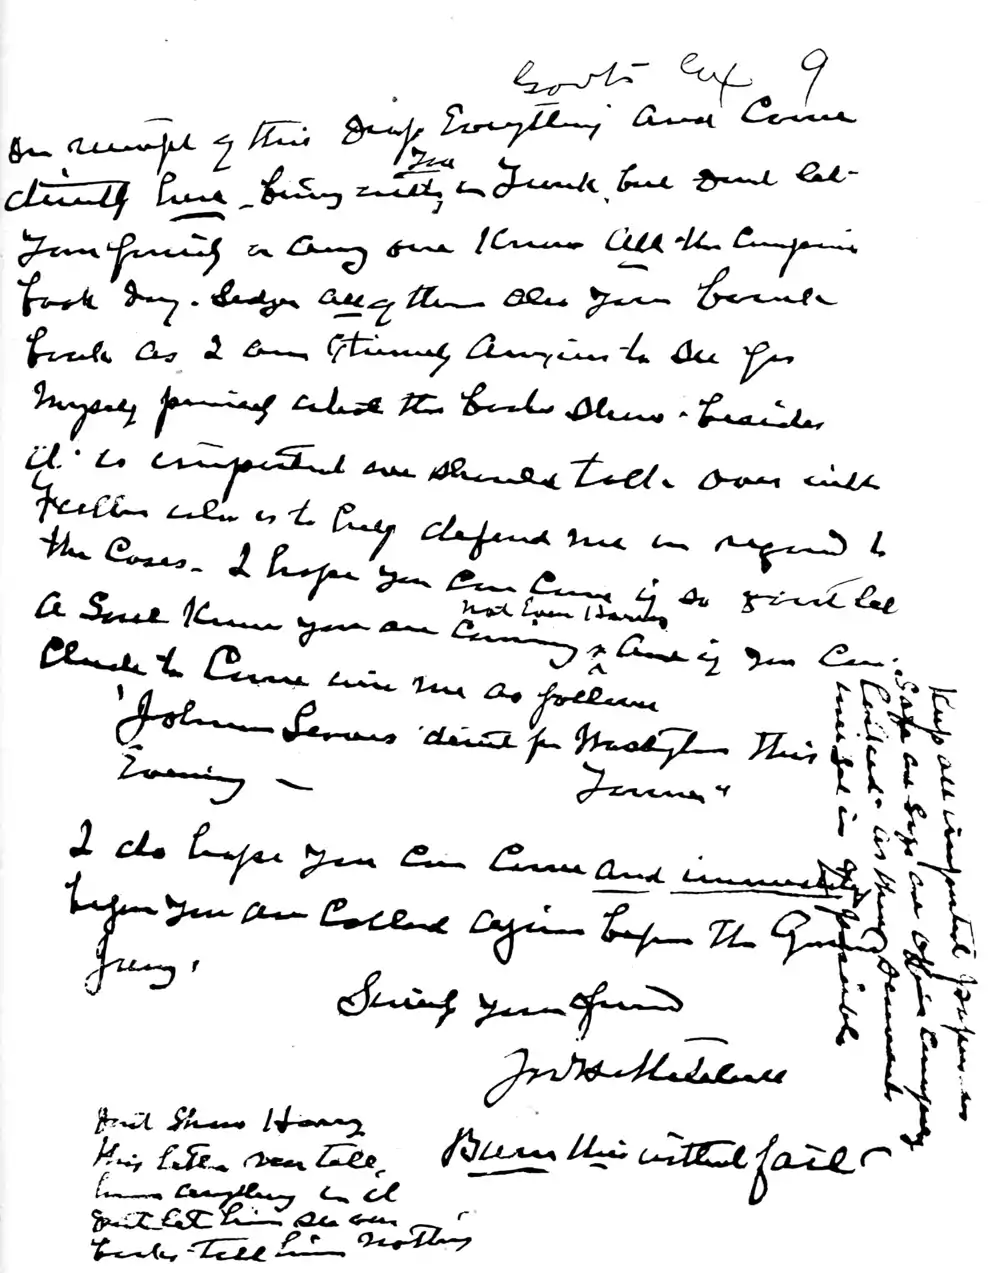 Govts Ex 9
On receipt of this drop Everything and Come
directly here - bring with you in Trunk, but dont let
Your family or any one Know all the Company
book Day - Ledger all of them also your bank
book as I am extremely anxious to see for
Myself precisely what the books show - besides
it is important we should talk over with
who is to help defend me in regard to
the Cases - I hope you can Come if so dont let
a Soul Know you are Coming not Even Harry & and if you Con-
clude to Come wire me as follows
"Johnson leaves direct for Washington this
Evening - Tanner"
I do hope you can Come and immediately
before you are Called again before the Grand
Jury.
Sincerely your friend
Jno H. Mitchell
Burn this without fail
Dont Show Harry
this letter nor tell
him anything in it
dont let him see our
books - tell him Nothing
Keep all important papers in